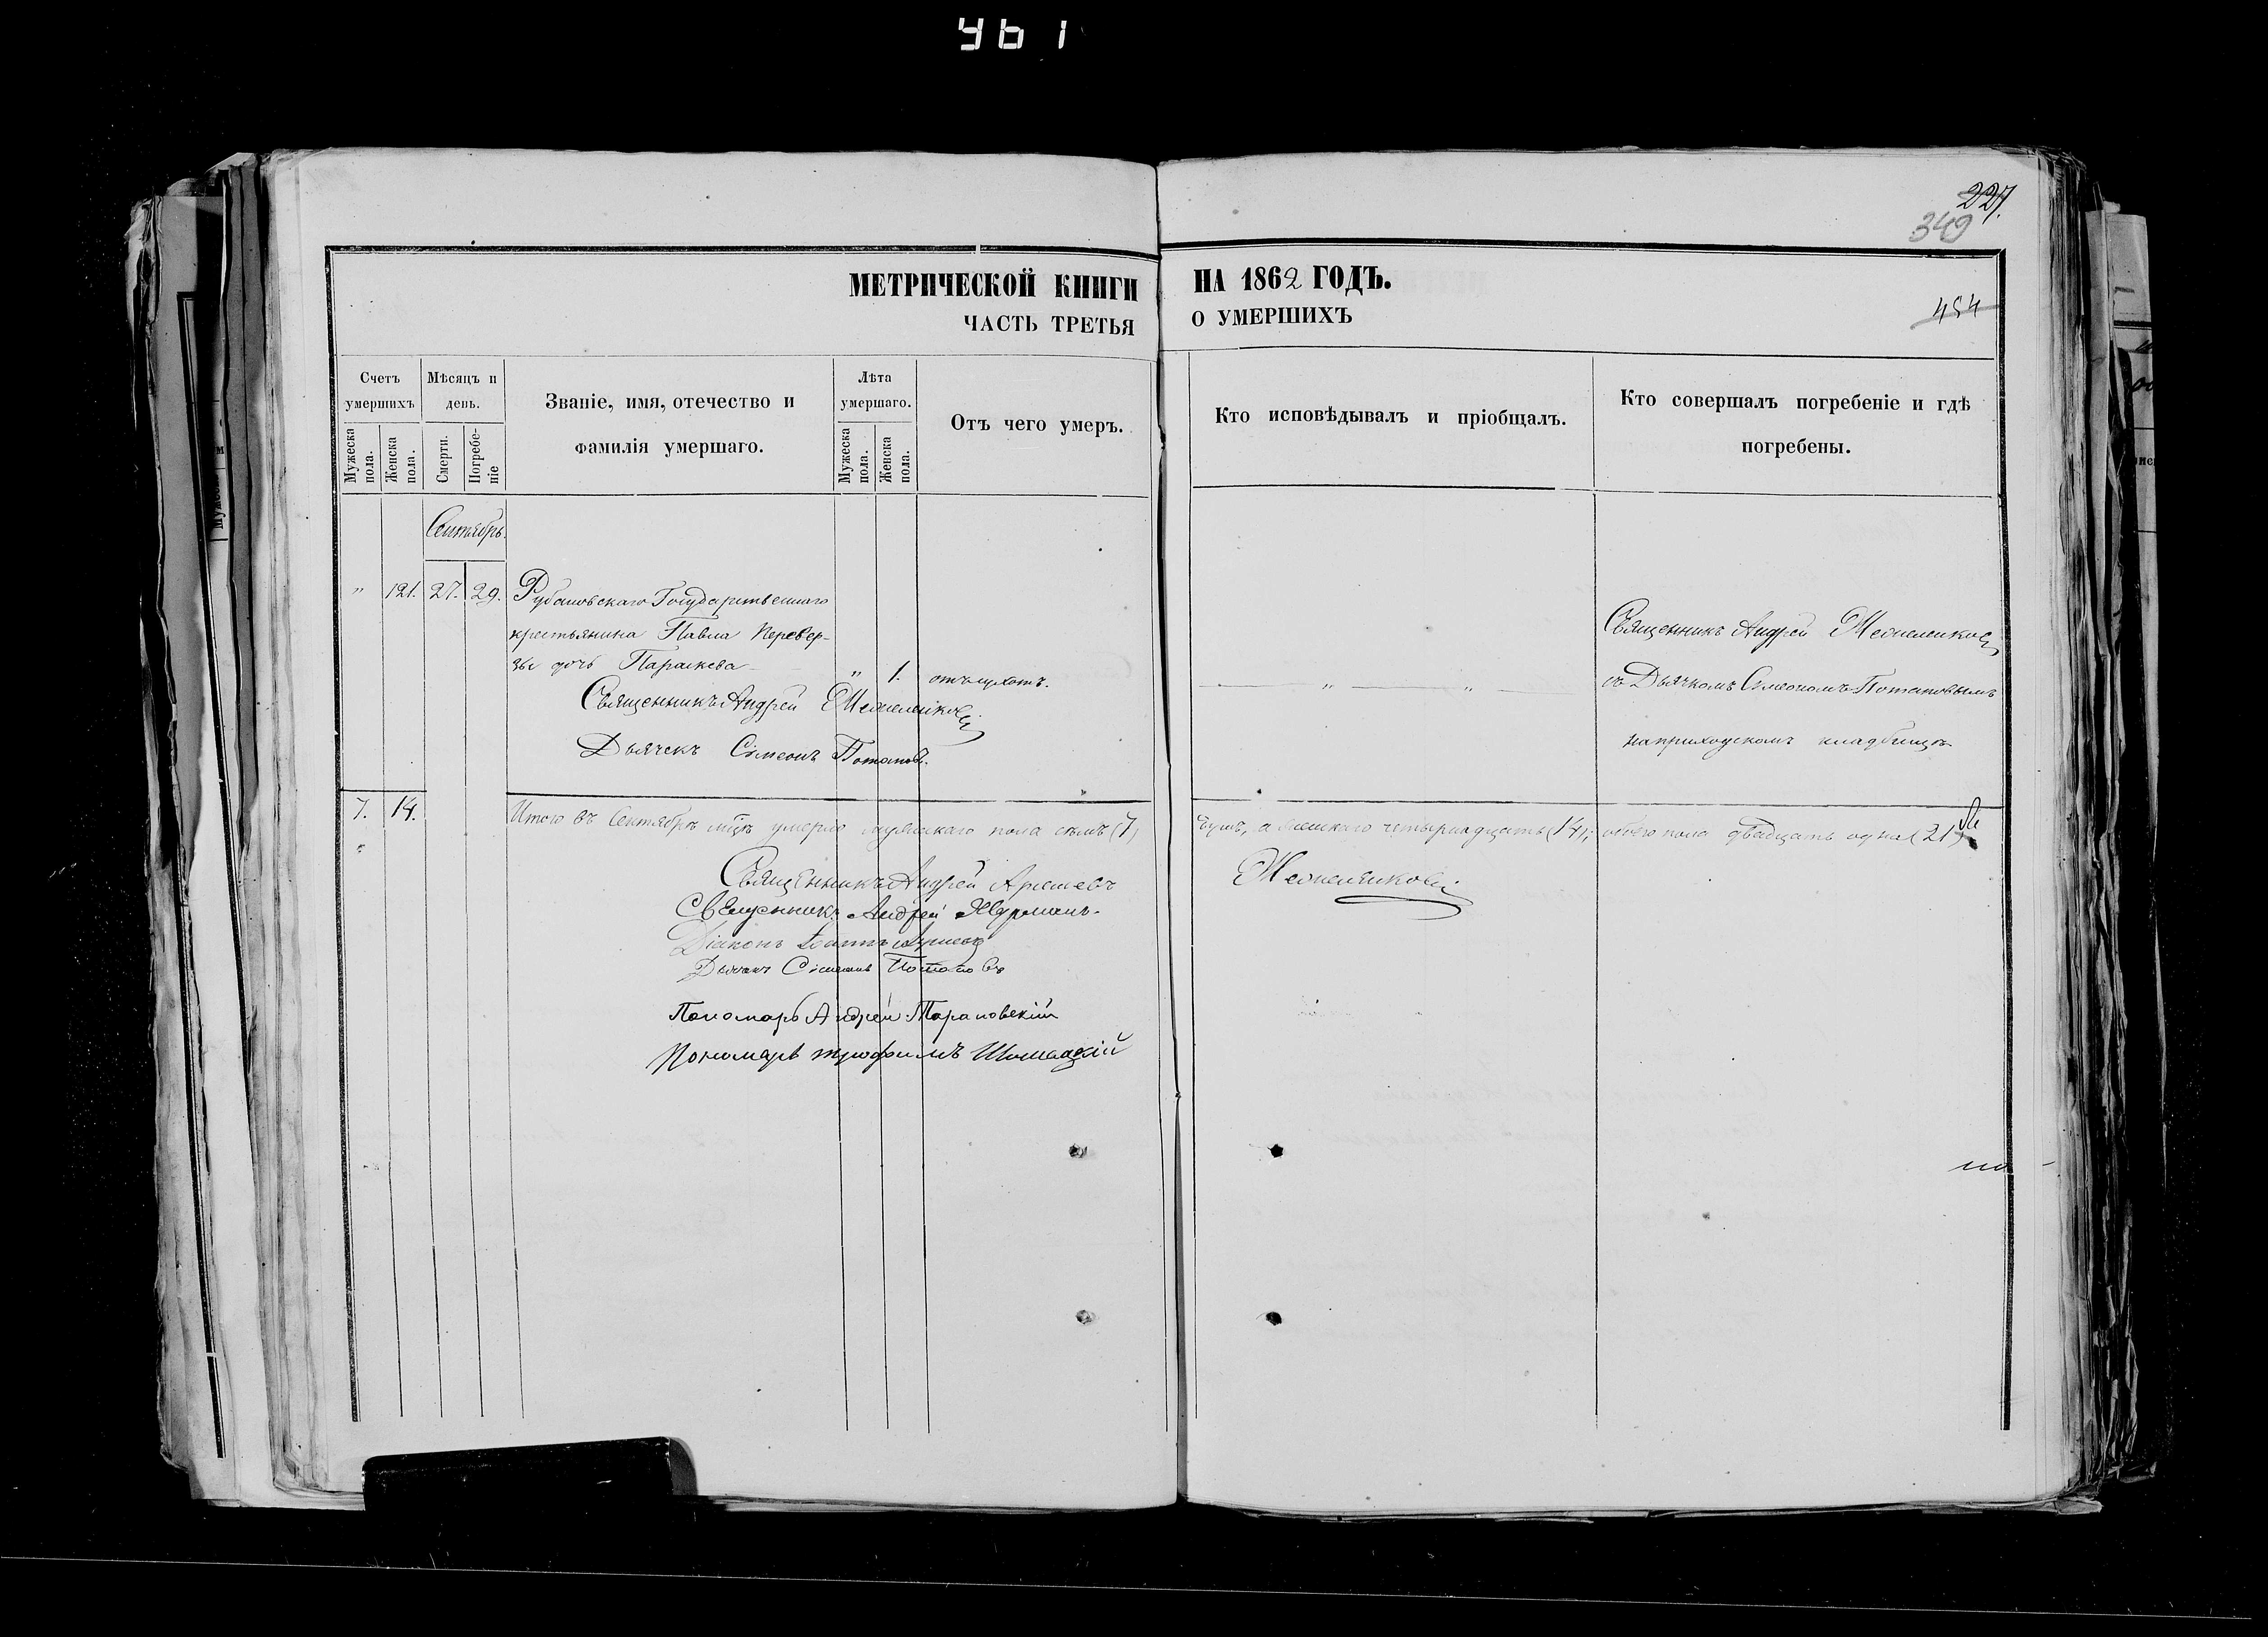 461
227.
349
МЕТРИЧЕСКОЙ КНИГИ НА 1862 ГОДЪ.
454
ЧАСТЬ ТРЕТЬЯ О УМЕРШИХЪ
Счетъ умершихъ
Мужеска пола.
Женска пола.
Мѣсяцъ и день.
Смерти.
Погребеніе
Званіе, имя, отечество и фамилія умершаго.
Лѣта умершаго.
Мужеска пола.
Женска пола.
Отъ чего умеръ.
Кто исповѣдывалъ и пріобщалъ.
Кто совершалъ погребеніе и гдѣ погребены.
Сентябрь.
" 121. 27. 29. Рубановскаго Государственнаго
крестьянина Павла Перевер-
зы дочь Параскева " 1.
Священникъ Андрей
Дьячекъ Сімеонъ Потаповъ.
" "
Священникъ Андрей
съ Дьячкомъ Сімеономъ Потаповымъ
на приходскомъ кладбищѣ
7. 14. Итого въ Сентябрѣ мцѣ умерло мужескаго пола семь (7)
душъ, а женскаго четырнадцать (14); обоего пола двадцать одна (21)
Священникъ Андрей
Священникъ Андрей
Діаконъ
Дьячекъ Сімеонъ Потаповъ
Пономарь Андрей Тарановскій
Пономарь Трофимъ